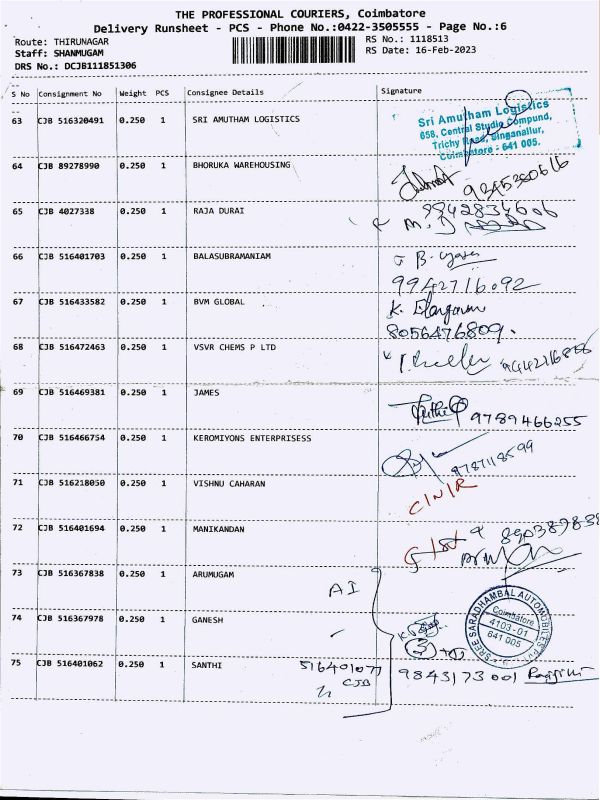 THE PROFESSIONAL COURIERS, Coimbatore
Delivery Runsheet - PCS - Phone No.:0422-3505555 - Page No.:6
Route: THIRUNAGAR
RS No.: 1118513
Staff: SHANMUGAM
RS Date: 16-Feb-2023
DRS No.: DCJB111851306
S No Consignment No Weight PCS Consignee Details Signature
63 CJB 516320491 0.250 1 SRI AMUTHAM LOGISTICS
Sri Amutham Logistics
658, Central Studio Compund,
Trichy Road, Singanallur,
Coimbatore - 641 005.
64 CJB 89278990 0.250 1 BHORUKA WAREHOUSING
9345360616
65 CJB 4027338 0.250 1 RAJA DURAI
9942834606
66 CJB 516401703 0.250 1 BALASUBRAMANIAM
9942716092
67 CJB 516433582 0.250 1 BVM GLOBAL
8056476809.
68 CJB 516472463 0.250 1 VSVR CHEMS P LTD
69 CJB 516469381 0.250 1 JAMES
9789466255
70 CJB 516466754 0.250 1 KEROMIYONS ENTERPRISESS
9787118599
71 CJB 516218050 0.250 1 VISHNU CAHARAN
C/N/R
72 CJB 516401694 0.250 1 MANIKANDAN
73 CJB 516367838 0.250 1 ARUMUGAM
AI
74 CJB 516367978 0.250 1 GANESH
SREE SARADHAMBAL AUTOMOBILES
Coimbatore
4103-01
641 005
75 CJB 516401062 0.250 1 SANTHI
516401077
CJB
9843173001